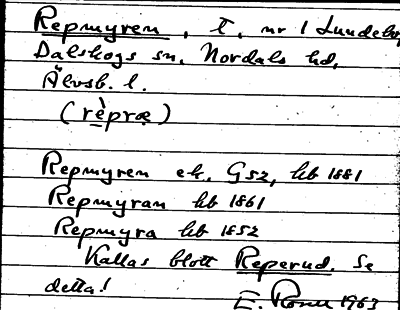 Repmyren, t. nr 1 Lundeby
Dalskogs sn, Nordals hd,
Älvsb. l.
(rèpræ)
Repmyren ek. G52, hb 1881
Repmyran hb 1861
Repmyra hb 1852
Kallas blott Reperud. Se
detta!
E. 1963